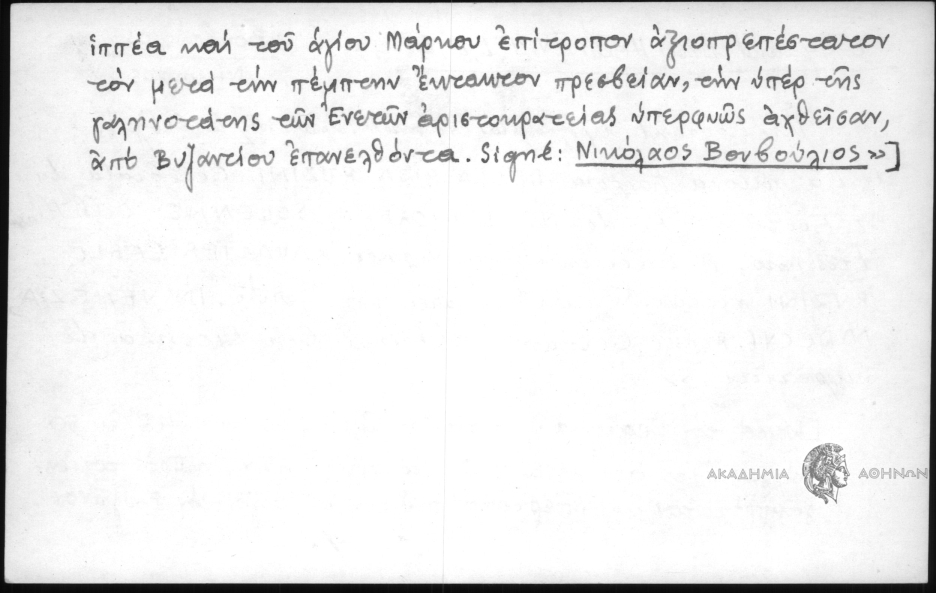 ἱππέα καὶ τοῦ ἁγίου Μάρκου ἐπίτροπον ἀξιοπρεπέστατον
τὸν μετὰ τὴν πέμπτην ἔνταυτον πρεσβείαν, τὴν ὑπὲρ τῆς
γαληνοτάτης τῶν Ἐνετῶν ἀριστοκρατείας ὑπερφυῶς ἀχθεῖσαν,
ἀπὸ Βυζαντίου ἐπανελθόντα. Signé: Νικόλαος Βουβούλιος »]
ΑΚΑΔΗΜΙΑ ΑΘΗΝΩΝ